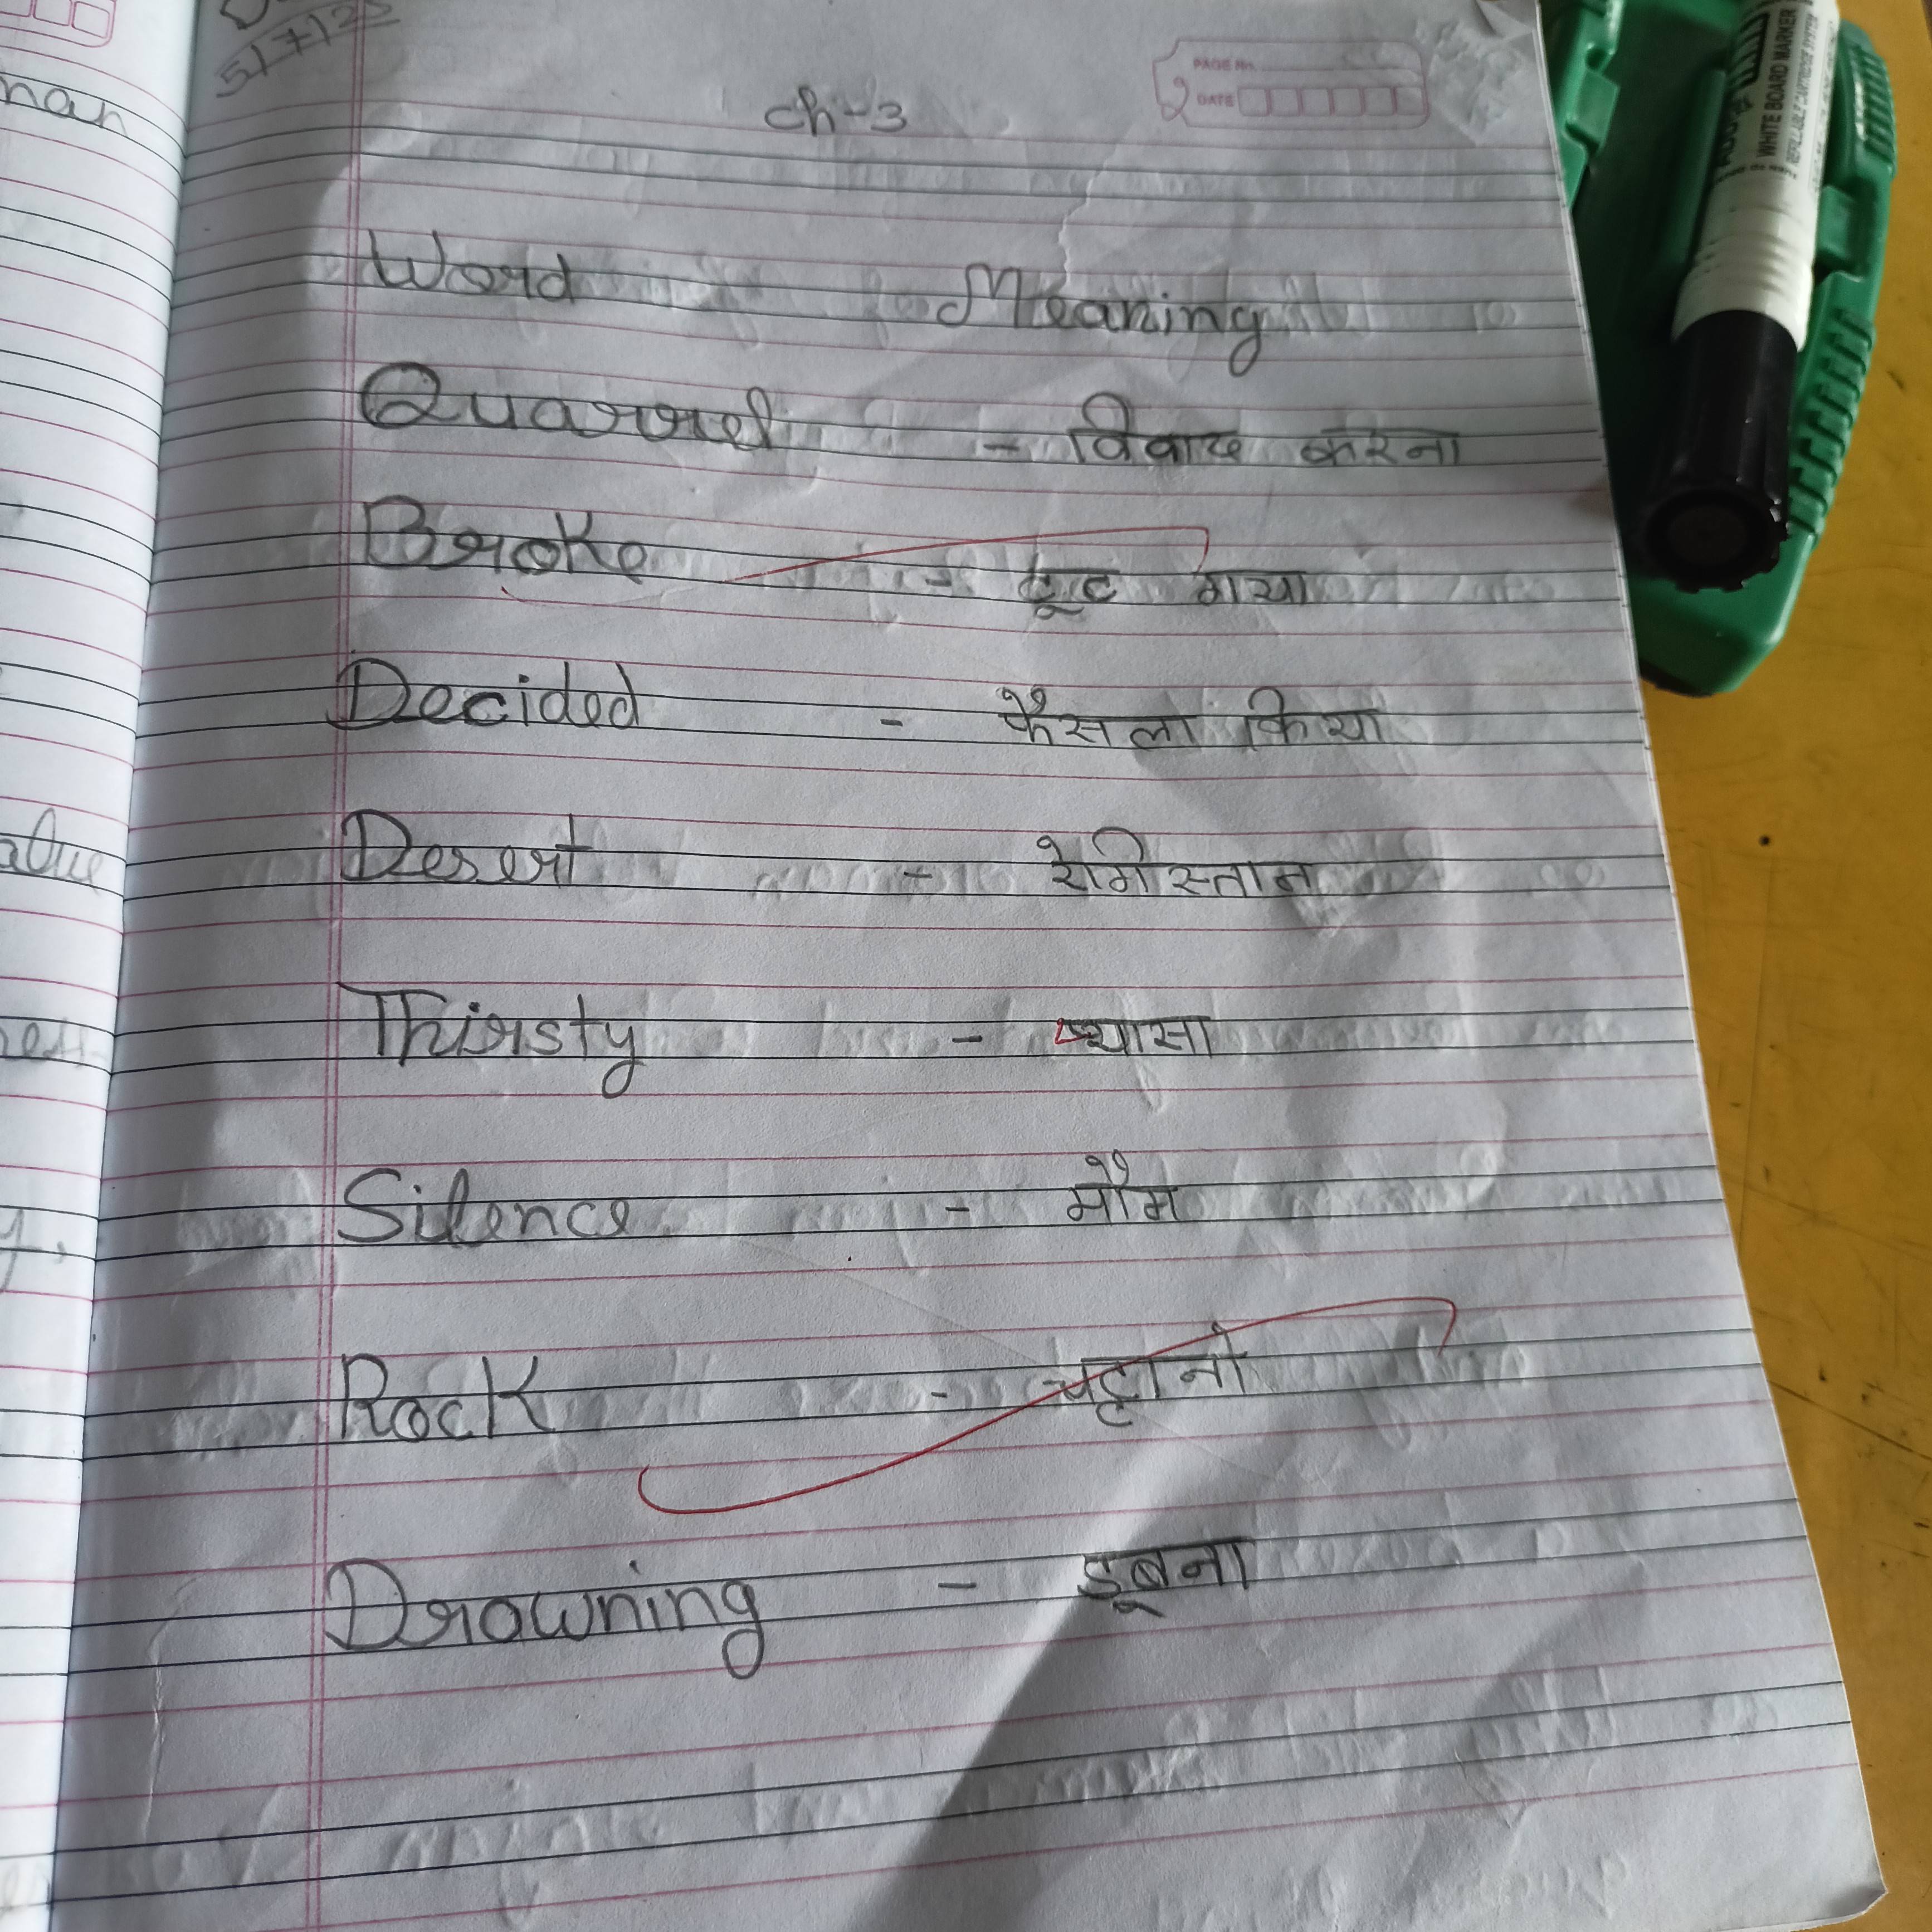 5/7/25
ch-3
PAGE No.
DATE
Word Meaning
Quarrel - विवाद करना
Broke - टूट गया
Decided - फैसला किया
Desert - रेगिस्तान
Thirsty - प्यासा
Silence - मौम
Rock - चट्टानो
Drowning - डूबना
alue
WHITE BOARD MARKER